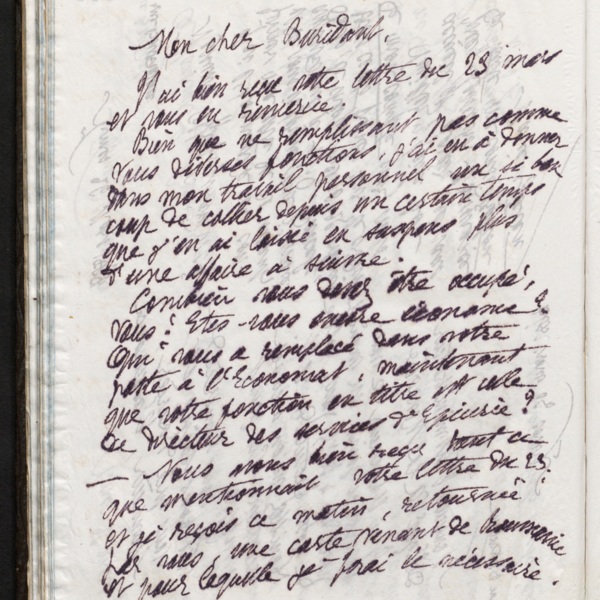 Mon cher Buridant,
J'ai bien reçu votre lettre du 23 mars
et vous en remercie.
Bien que ne remplissant pas comme
vous diverses fonctions, j'ai eu à donner
dans mon travail personnel un si bon
coup de collier depuis un certain temps
que j'en ai laissé en suspens plus
d'une affaire à suivre.
Combien vous devez être occupé,
vous! Etes-vous encore économe?
Qui vous a remplacé dans votre
poste à l'Economat, maintenant
que votre fonction en titre est celle
de directeur des services d'Epicerie?
— Nous avons bien reçu tout ce
que mentionnait votre lettre du 23.
et je reçois ce matin, retournée
par vous, une carte venant de Roumanie
et pour laquelle je ferai le nécessaire.